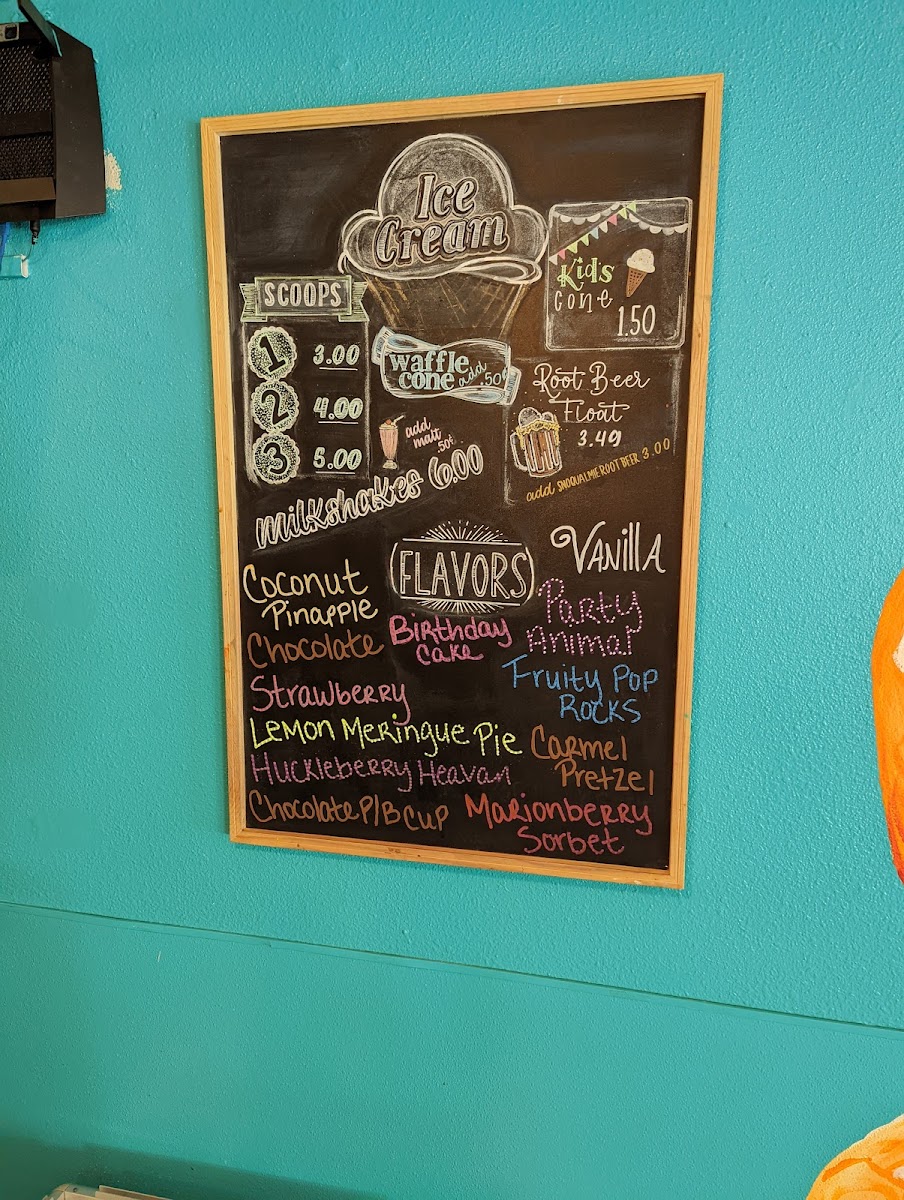 Ice
Cream
SCOOPS
1 3.00
2 4.00
3 5.00
waffle
cone add .50¢
Kid's
cone
1.50
add
malt
.50¢
milkshakes 6.00
Root Beer
Float
3.49
add SNOQUALMIE ROOT BEER 3.00
FLAVORS
Vanilla
Coconut
Pinapple
Chocolate
Birthday
Cake
Party
Animal
Strawberry
Fruity Pop
Rocks
Lemon Meringue Pie
Carmel
Pretzel
Huckleberry Heavan
Chocolate P/B Cup
Marionberry
Sorbet